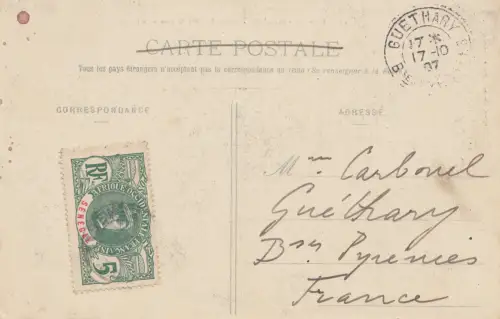 CARTE POSTALE
Tous les pays étrangers n'acceptent pas la correspondance au recto (Se renseigner à la
CORRESPONDANCE
ADRESSE
GUETHARY
17 *
17-10
07
RF
AFRIQUE OCCIDENTALE
FRANÇAISE
SENEGAL
5
Mme Carbonel
Guéthary
Bses Pyrénées
France